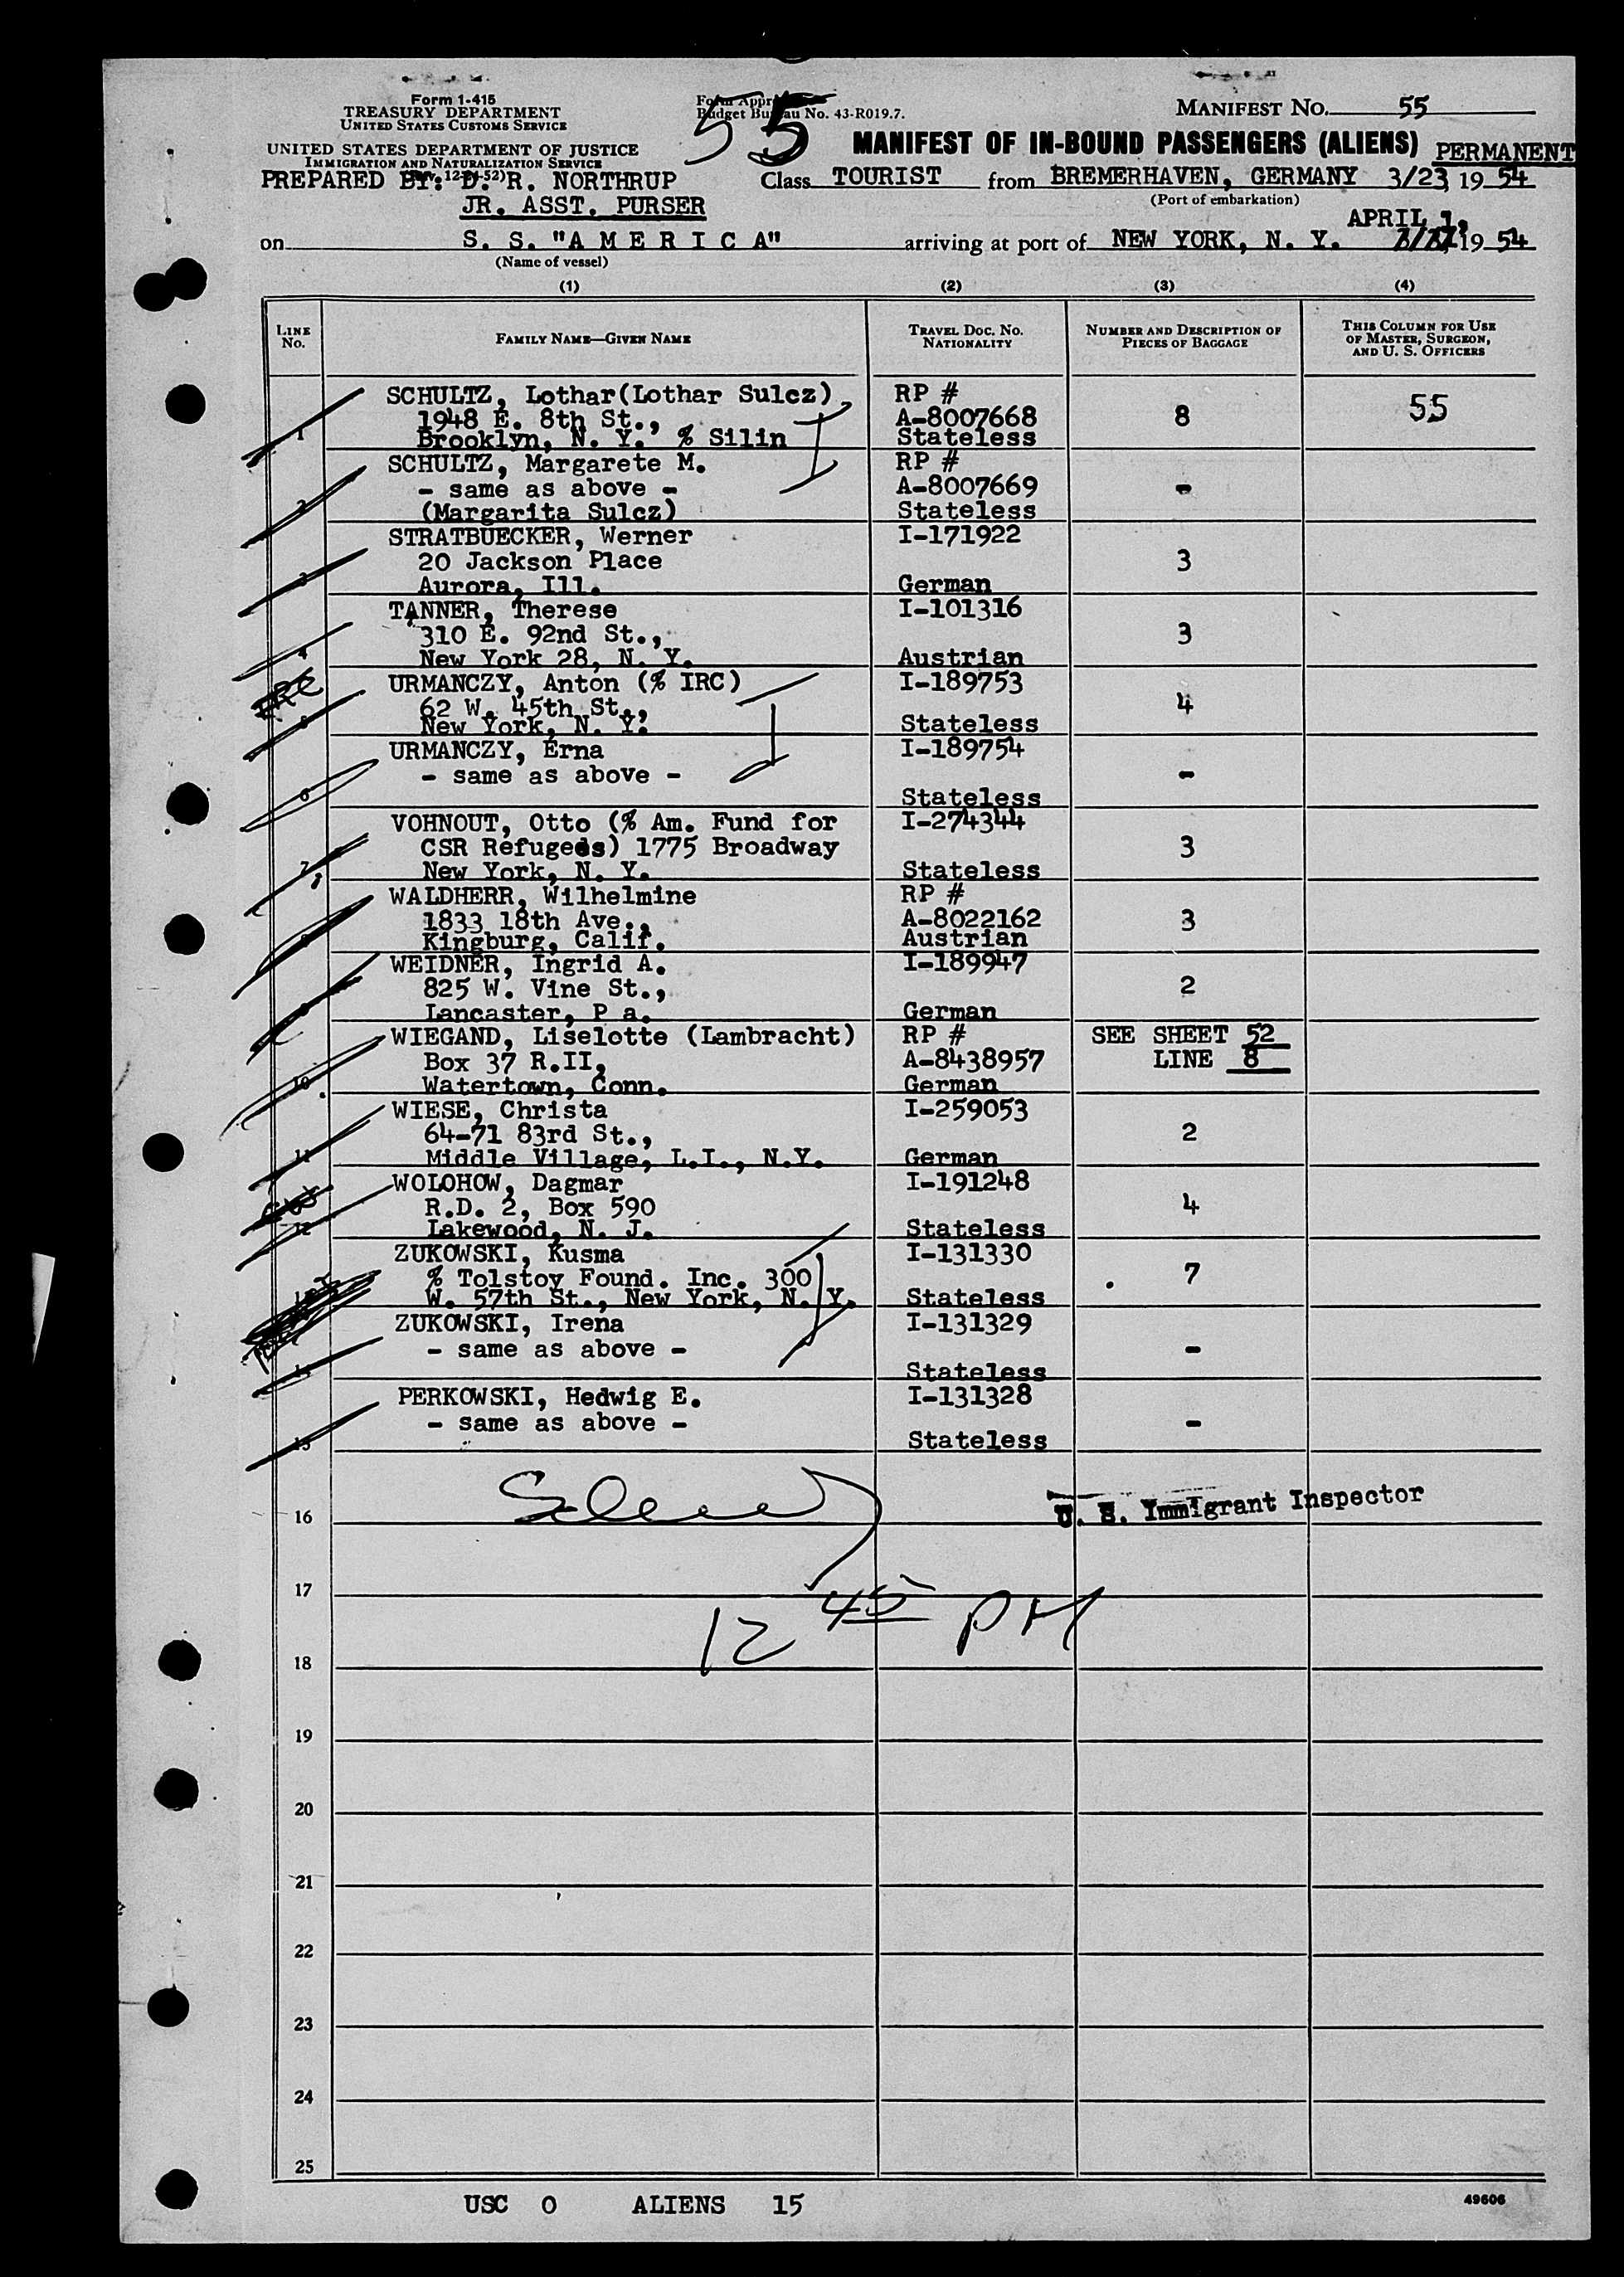 Form 1-415
TREASURY DEPARTMENT
UNITED STATES CUSTOMS SERVICE
UNITED STATES DEPARTMENT OF JUSTICE
IMMIGRATION AND NATURALIZATION SERVICE
PREPARED BY: D. R. NORTHRUP
JR. ASST. PURSER
Budget Bureau No. 43-R019.7.
55
MANIFEST NO. 55
MANIFEST OF IN-BOUND PASSENGERS (ALIENS) PERMANENT
Class TOURIST from BREMERHAVEN, GERMANY 3/23, 19 54
(Port of embarkation)
APRIL 1,
on S. S. "A M E R I C A" arriving at port of NEW YORK, N. Y. 19 54
(Name of vessel)
(1) (2) (3) (4)
LINE NO. FAMILY NAME—GIVEN NAME TRAVEL DOC. NO. NATIONALITY NUMBER AND DESCRIPTION OF PIECES OF BAGGAGE THIS COLUMN FOR USE OF MASTER, SURGEON, AND U. S. OFFICERS
SCHULTZ, Lothar(Lothar Sulcz) RP # 55
1948 E. 8th St., A-8007668 8
1 Brooklyn, N. Y. % Silin Stateless
SCHULTZ, Margarete M. RP #
- same as above - A-8007669 -
2 (Margarita Sulcz) Stateless
STRATBUECKER, Werner I-171922
20 Jackson Place 3
3 Aurora, Ill. German
TANNER, Therese I-101316
310 E. 92nd St., 3
4 New York 28, N. Y. Austrian
IRC URMANCZY, Anton (% IRC) I-189753
62 W. 45th St., 4
5 New York, N. Y. Stateless
URMANCZY, Erna I-189754
- same as above - -
6 Stateless
VOHNOUT, Otto (% Am. Fund for I-274344
CSR Refugees) 1775 Broadway 3
7 New York, N. Y. Stateless
WALDHERR, Wilhelmine RP #
1833 18th Ave., A-8022162 3
8 Kingburg, Calif. Austrian
WEIDNER, Ingrid A. I-189947
825 W. Vine St., 2
9 Lancaster, P a. German
WIEGAND, Liselotte (Lambracht) RP # SEE SHEET 52
Box 37 R.II, A-8438957 LINE 8
10 Watertown, Conn. German
WIESE, Christa I-259053
64-71 83rd St., 2
11 Middle Village, L.I., N.Y. German
WOLOHOW, Dagmar I-191248
R.D. 2, Box 590 4
12 Lakewood, N. J. Stateless
ZUKOWSKI, Kusma I-131330
% Tolstoy Found. Inc. 300 7
13 W. 57th St., New York, N. Y. Stateless
ZUKOWSKI, Irena I-131329
- same as above - -
14 Stateless
PERKOWSKI, Hedwig E. I-131328
- same as above - -
15 Stateless
16 U. S. Immigrant Inspector
17
12 45 PM
18
19
20
21
22
23
24
25
USC 0 ALIENS 15
49606